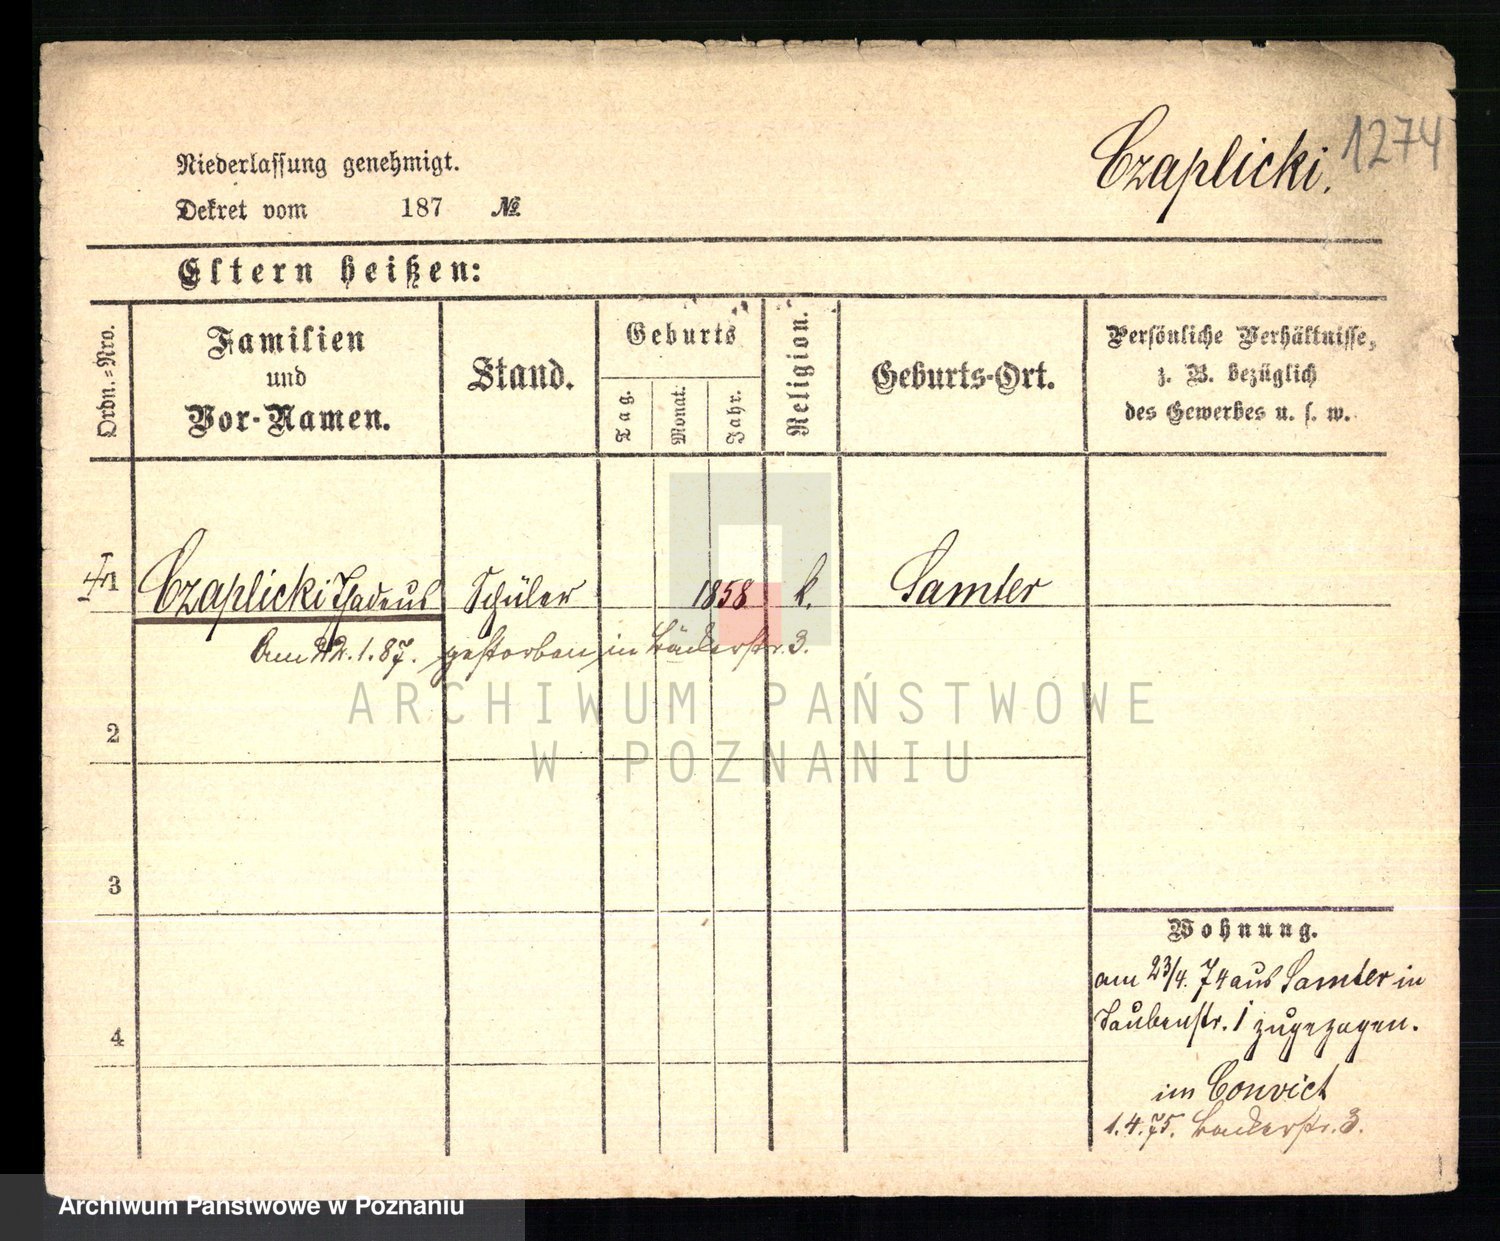 Czaplicki. 1274
Niederlassung genehmigt.
Dekret vom 187 №
Eltern heißen:
Ordn.-Nro.
Familien
und
Vor-Namen.
Stand.
Geburts
Tag.
Monat.
Jahr.
Religion.
Geburts-Ort.
Persönliche Verhältnisse,
z. B. bezüglich
des Gewerbes u. s. w.
1 Czaplicki Thadeus Schüler 1858 k. Samter
Am 22.1.87. gestorben in Bäckerstr. 3.
2
3
4
Wohnung.
am 23/4. 74 aus Samter in
Taubenstr. 1 zugezogen.
im Convict
1.4.75. Bäckerstr. 3.
ARCHIWUM PAŃSTWOWE
W POZNANIU
Archiwum Państwowe w Poznaniu